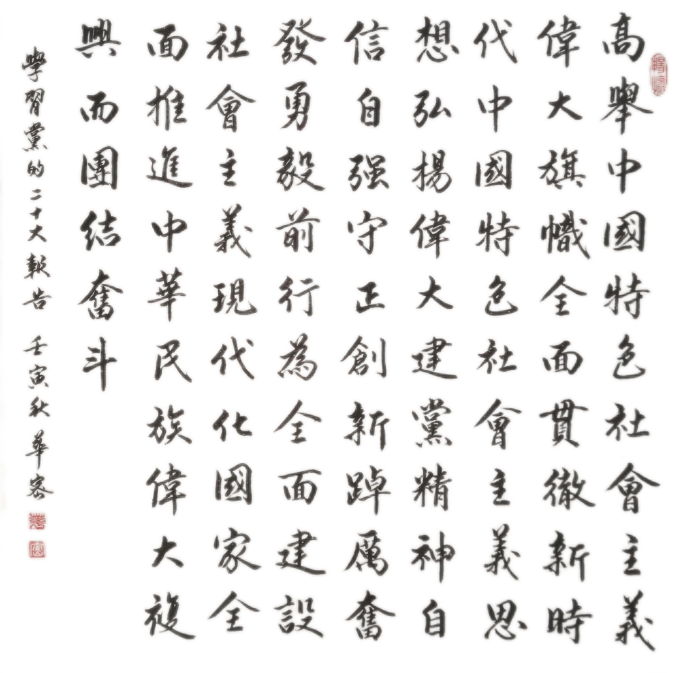 高舉中國特色社會主義
偉大旗幟全面貫徹新時
代中國特色社會主義思
想弘揚偉大建黨精神自
信自强守正創新踔厲奮
發勇毅前行為全面建設
社會主義現代化國家全
面推進中華民族偉大複
興而團結奮斗
學習黨的二十大報告 壬寅秋 華容